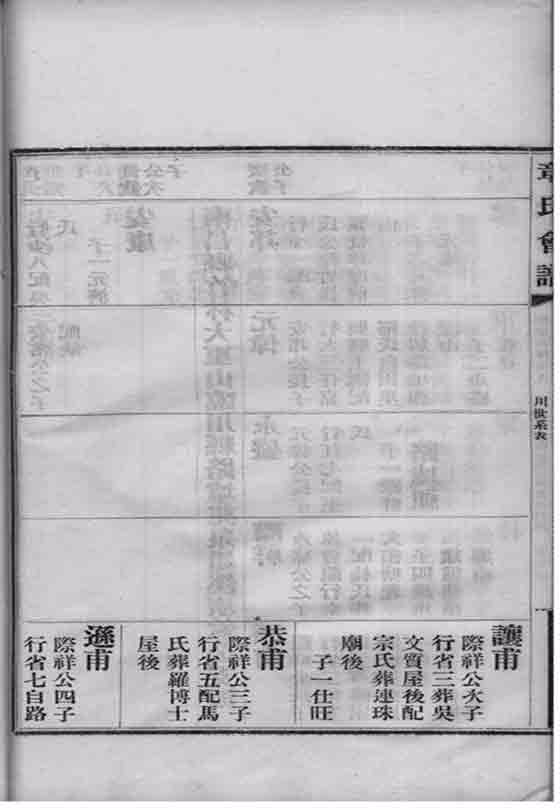 章氏會譜
川世系表
讓甫
際祥公次子
行省三葬吳
文質屋後配
宗氏葬連珠
廟後
子一仕旺
恭甫
際祥公三子
行省五配馬
氏葬羅博士
屋後
遜甫
際祥公四子
行省七自路